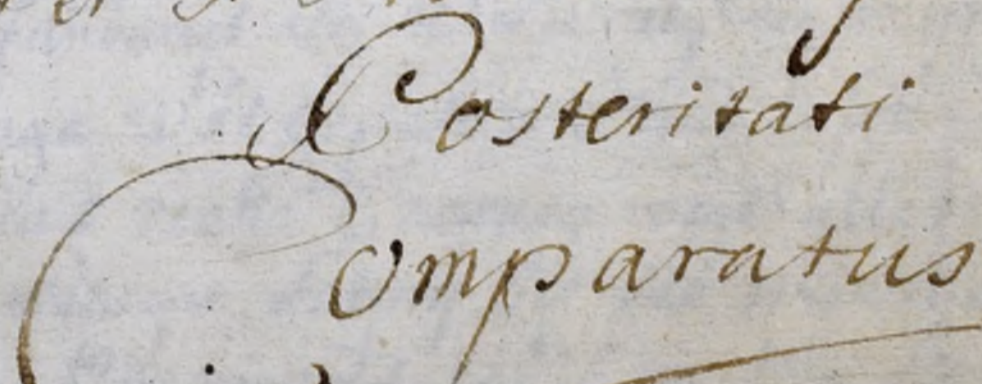 Posteritati
Comparatus